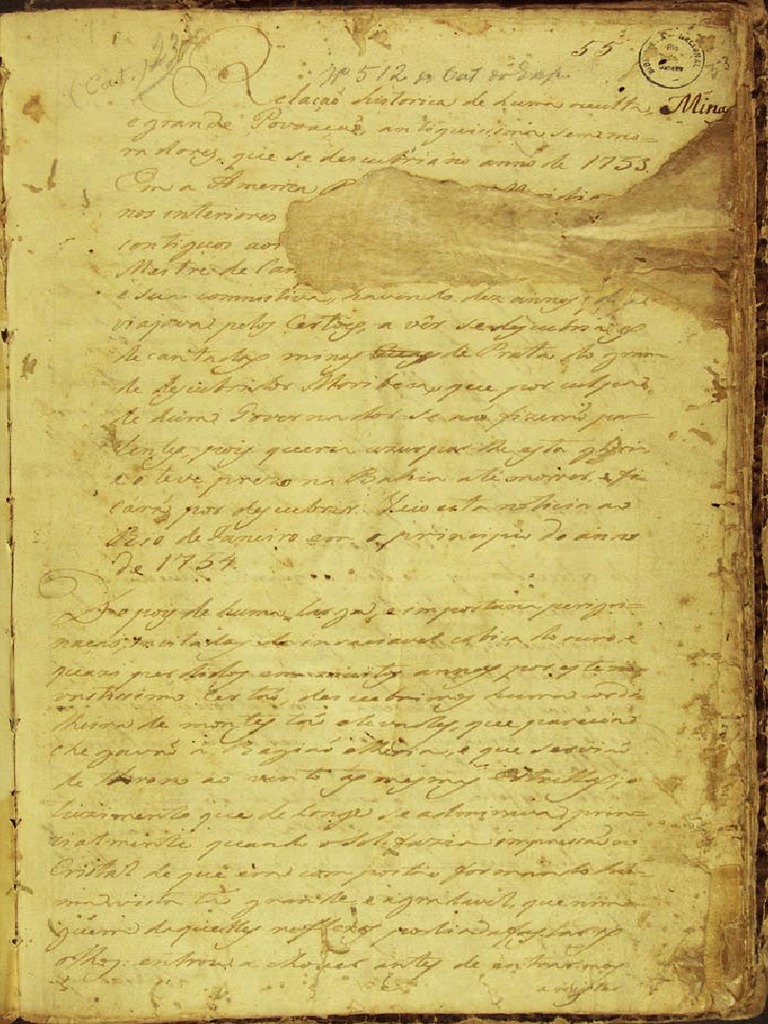 (Cat. 123
55
Nº 512 do Cat. da Exp.
Relação historica de huma occulta,
Mina
e grande Povoação, antiquissima sem mo-
radores, que se descubriu no anno de 1753.
Em a America
nos interiores
contiguos aos
Mestre de Can
e sua comitiva, havendo dez annos, q
viajava pelos Certões, a vêr se descubria as
decantadas minas de Prata do gran-
de descubridor Moribeca, que por culpa
de hum Governador se não fizerão pa-
tentes, pois queria uzurparlhe esta gloria
e o teve prezo na Bahia até morrer, e fi-
carão por descubrir. Veio esta noticia ao
Rio de Janeiro em o principio do anno
de 1754.
Depois de huma larga, e importuna perigri-
nação, incitados da insaciavel cobiça do ouro, e
quazi perdidos em muitos annos por este
vastissimo Certão, descubrimos huma cordi-
lheira de montes tão elevados, que parecia
chegavão á Região etherea, e que servião
de throno ao vento, ás mesmas Estrellas; o
luzimento que de longe se admirava, prin-
cipalmente quando o Sol fazia impressão no
Cristal de que era composta e formando hu-
ma vista tão grande, e agradavel, que nin-
guem daquelles reflexos podia afastar os
olhos: entrou a chover antes de entrarmos
a registar